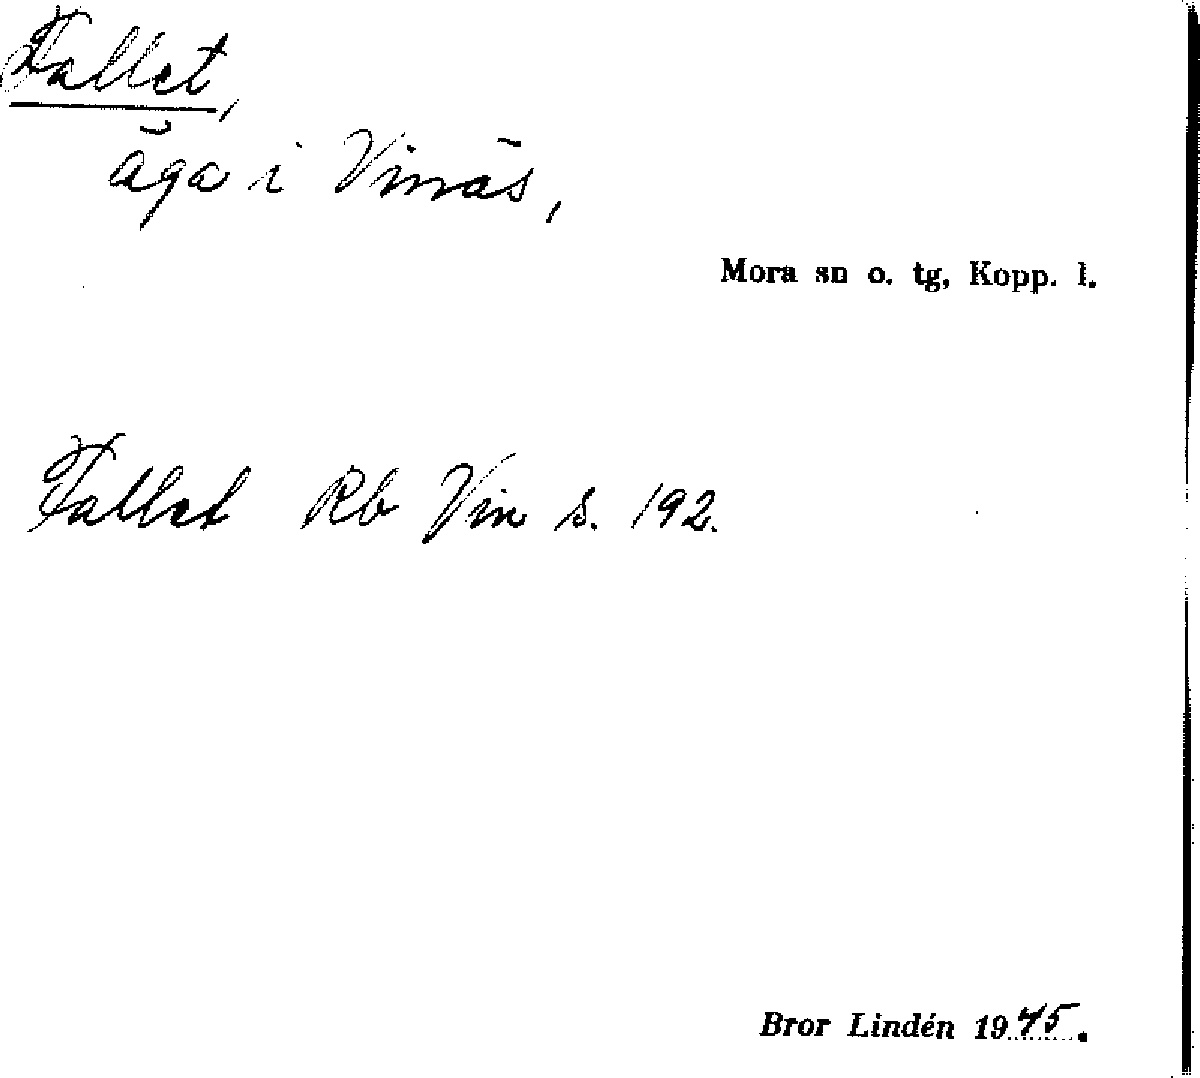 Fallet,
äga i Vinäs,
Mora sn o. tg, Kopp. l.
Fallet Rb Vin s. 192.
Bror Lindén 1945.